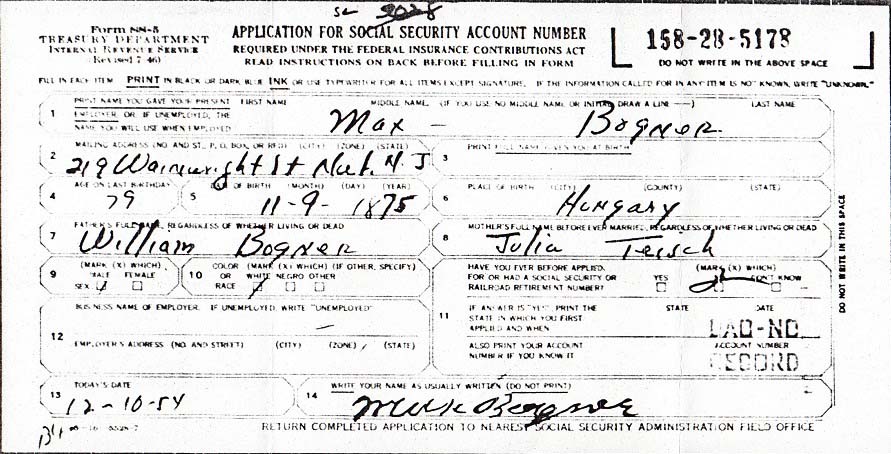 Form SS-5
TREASURY DEPARTMENT
INTERNAL REVENUE SERVICE
(Revised 7-46)
APPLICATION FOR SOCIAL SECURITY ACCOUNT NUMBER
REQUIRED UNDER THE FEDERAL INSURANCE CONTRIBUTIONS ACT
READ INSTRUCTIONS ON BACK BEFORE FILLING IN FORM
158-28-5178
DO NOT WRITE IN THE ABOVE SPACE
FILL IN EACH ITEM PRINT IN BLACK OR DARK BLUE INK OR USE TYPEWRITER FOR ALL ITEMS EXCEPT SIGNATURE. IF THE INFORMATION CALLED FOR IN ANY ITEM IS NOT KNOWN, WRITE "UNKNOWN."
1 PRINT NAME YOU GAVE YOUR PRESENT EMPLOYER OR IF UNEMPLOYED, THE NAME YOU WILL USE WHEN EMPLOYED
FIRST NAME MIDDLE NAME, (IF YOU USE NO MIDDLE NAME OR INITIAL DRAW A LINE —) LAST NAME
Max — Bogner
2 MAILING ADDRESS (NO. AND ST., P. O. BOX, OR RFD) (CITY) (ZONE) (STATE)
219 Wainwright St N.J
3 PRINT FULL NAME GIVEN YOU AT BIRTH
4 AGE ON LAST BIRTHDAY
79
5 DATE OF BIRTH (MONTH) (DAY) (YEAR)
11-9-1875
6 PLACE OF BIRTH (CITY) (COUNTY) (STATE)
Hungary
7 FATHER'S FULL NAME, REGARDLESS OF WHETHER LIVING OR DEAD
William Bogner
8 MOTHER'S FULL NAME BEFORE EVER MARRIED, REGARDLESS OF WHETHER LIVING OR DEAD
Julia
9 (MARK (X) WHICH)
SEX MALE FEMALE
10 COLOR OR RACE (MARK (X) WHICH) (IF OTHER, SPECIFY)
WHITE NEGRO OTHER
HAVE YOU EVER BEFORE APPLIED FOR OR HAD A SOCIAL SECURITY OR RAILROAD RETIREMENT NUMBER?
(MARK (X) WHICH)
YES DON'T KNOW
11 IF ANSWER IS "YES" PRINT THE STATE IN WHICH YOU FIRST APPLIED AND WHEN
STATE DATE
ALSO PRINT YOUR ACCOUNT NUMBER IF YOU KNOW IT
ACCOUNT NUMBER
RECORD
12 BUSINESS NAME OF EMPLOYER. IF UNEMPLOYED, WRITE "UNEMPLOYED"
—
EMPLOYER'S ADDRESS (NO. AND STREET) (CITY) (ZONE) (STATE)
13 TODAY'S DATE
12-10-54
14 WRITE YOUR NAME AS USUALLY WRITTEN (DO NOT PRINT)
Max Bogner
DO NOT WRITE IN THIS SPACE
RETURN COMPLETED APPLICATION TO NEAREST SOCIAL SECURITY ADMINISTRATION FIELD OFFICE